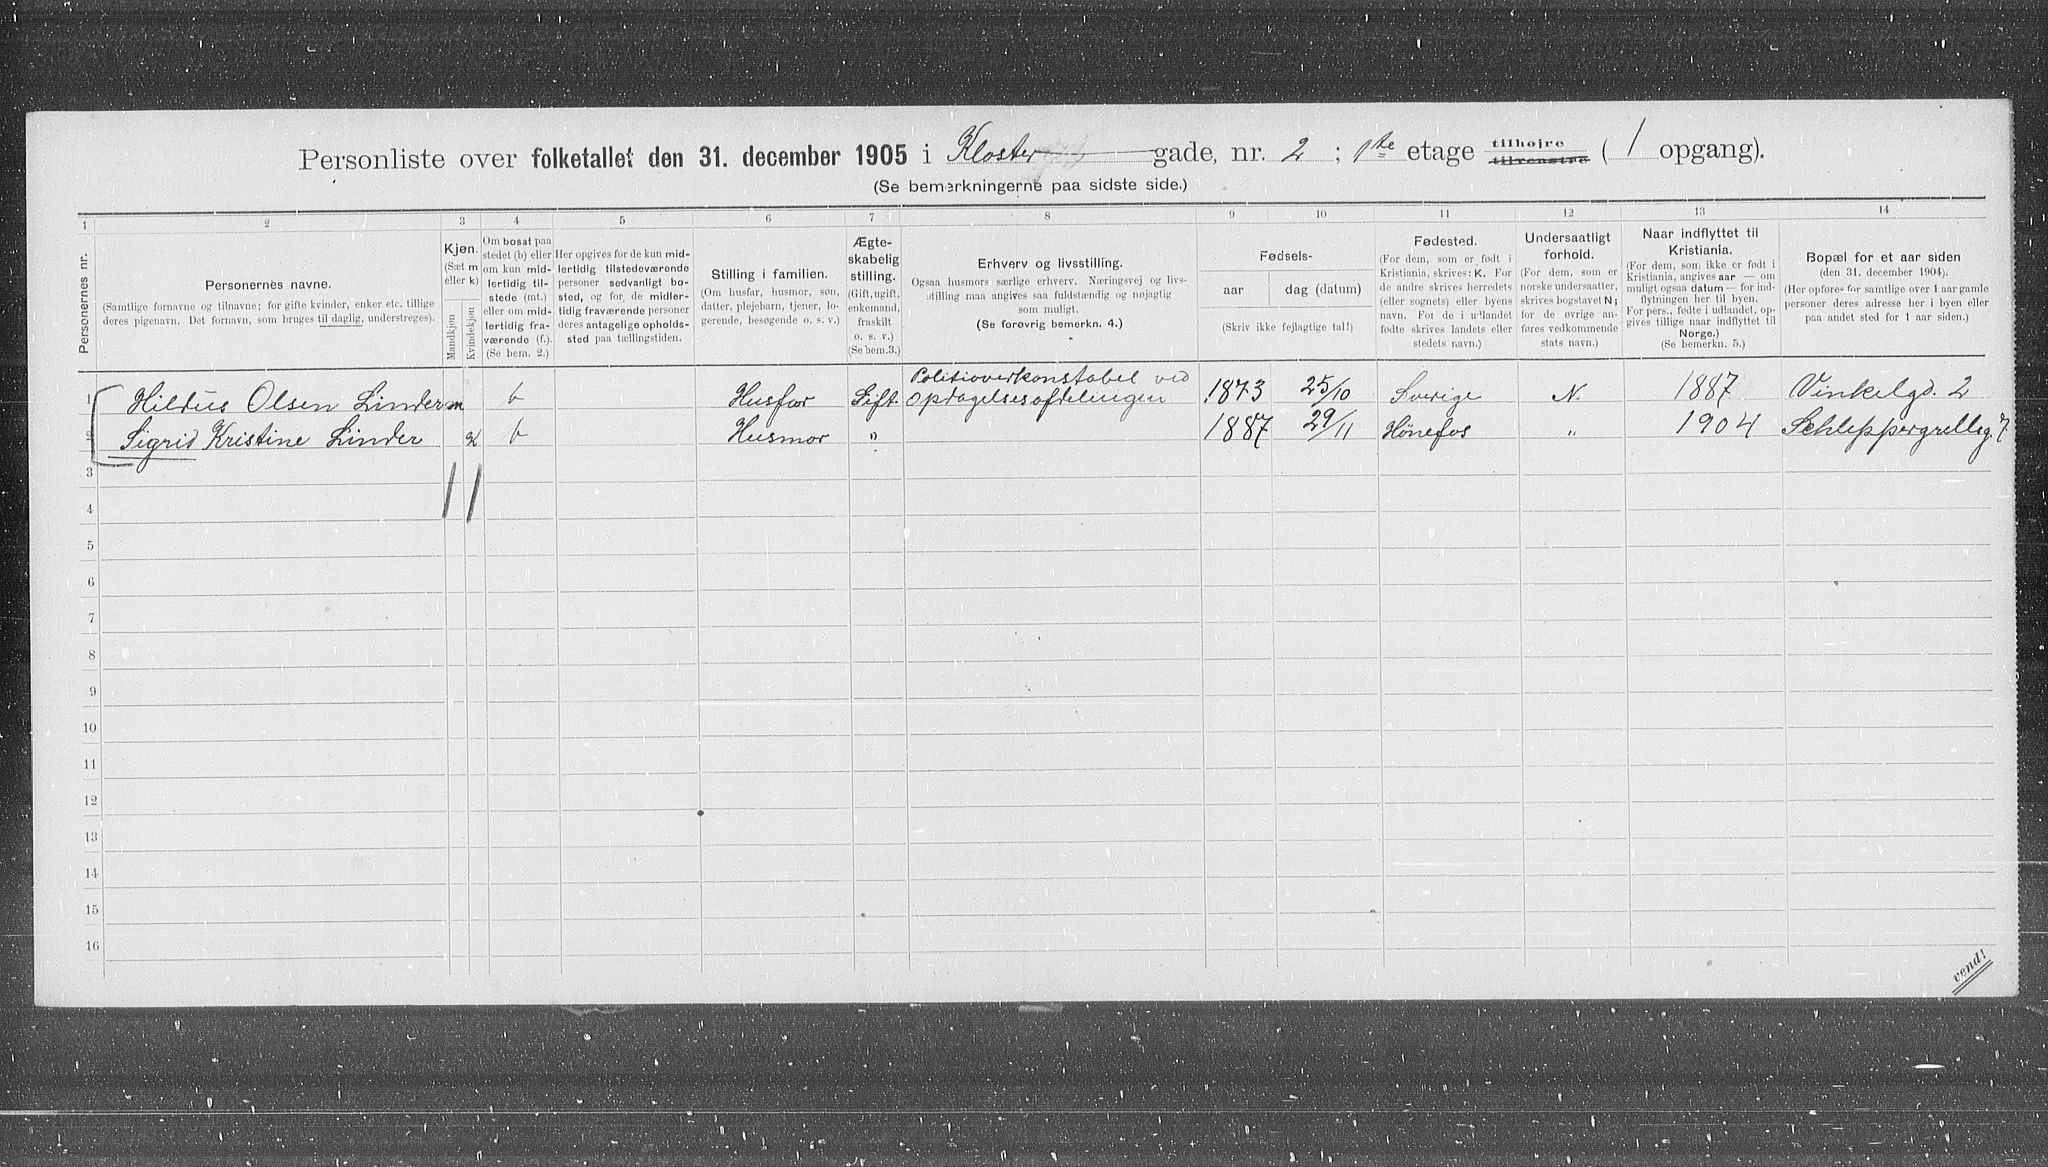 Personliste over folketallet den 31. december 1905 i Kloster gade, nr. 2 ; 1ste etage tilhøjre tilvenstre ( 1 opgang).
(Se bemerkningerne paa sidste side.)
1 2 3 4 5 6 7 8 9 10 11 12 13 14
Personernes nr.
Personernes navne.
(Samtlige fornavne og tilnavne; for gifte kvinder, enker etc. tillige
deres pigenavn. Det fornavn, som bruges til daglig, understreges).
Kjøn.
(Sæt m
eller k)
Mandkjøn
Kvindekjøn
Om bosat paa
stedet (b) eller
om kun mid-
lertidig til-
stede (mt.)
eller om mid-
lertidig fra-
værende (f.).
(Se bem. 2.)
Her opgives for de kun mid-
lertidig tilstedeværende
personer sedvanligt bo-
sted, og for de midler-
tidig fraværende personer
deres antagelige opholds-
sted paa tællingstiden.
Stilling i familien.
(Om husfar, husmor, søn,
datter, plejebarn, tjener, lo-
gerende, besøgende o. s. v.)
Ægte-
skabelig
stilling.
(Gift, ugift,
enkemand,
fraskilt
o. s. v.)
(Se bem.3.)
Erhverv og livsstilling.
Ogsaa husmors særlige erhverv. Næringsvej og livs-
stilling maa angives saa fuldstændig og nøjagtig
som muligt.
(Se forøvrig bemerkn. 4.)
Fødsels-
aar dag (datum)
(Skriv ikke fejlagtige tal!)
Fødested.
(For dem, som er født i
Kristiania, skrives: K. For
de andre skrives herredets
(eller sognets) eller byens
navn. For de i udlandet
fødte skrives landets eller
stedets navn.)
Undersaatligt
forhold.
(For dem, som er
norske undersaatter,
skrives bogstavet N;
for de øvrige an-
føres vedkommende
stats navn.)
Naar indflyttet til
Kristiania.
(For dem, som ikke er født i
Kristiania, angives aar — om
muligt ogsaa datum — for ind-
flytningen her til byen.
For pers., fødte i udlandet, op-
gives tillige naar indflyttet til
Norge.)
(Se bemerkn. 5.)
Bopæl for et aar siden
(den 31. december 1904).
(Her opføres for samtlige over 1 aar gamle
personer deres adresse her i byen eller
paa andet sted for 1 aar siden.)
1 Hildus Olsen Linder m b Husfar Gift. Politioverkonstabel ved
opdagelsesafdelingen 1873 25/10 Sverige N. 1887 Vinkelgd. 2
2 Sigrid Kristine Linder k b Husmor " 1887 29/11 Hönefos " 1904 Schleppergrellsg. 7
3
4
5
6
7
8
9
10
11
12
13
14
15
16
vend!